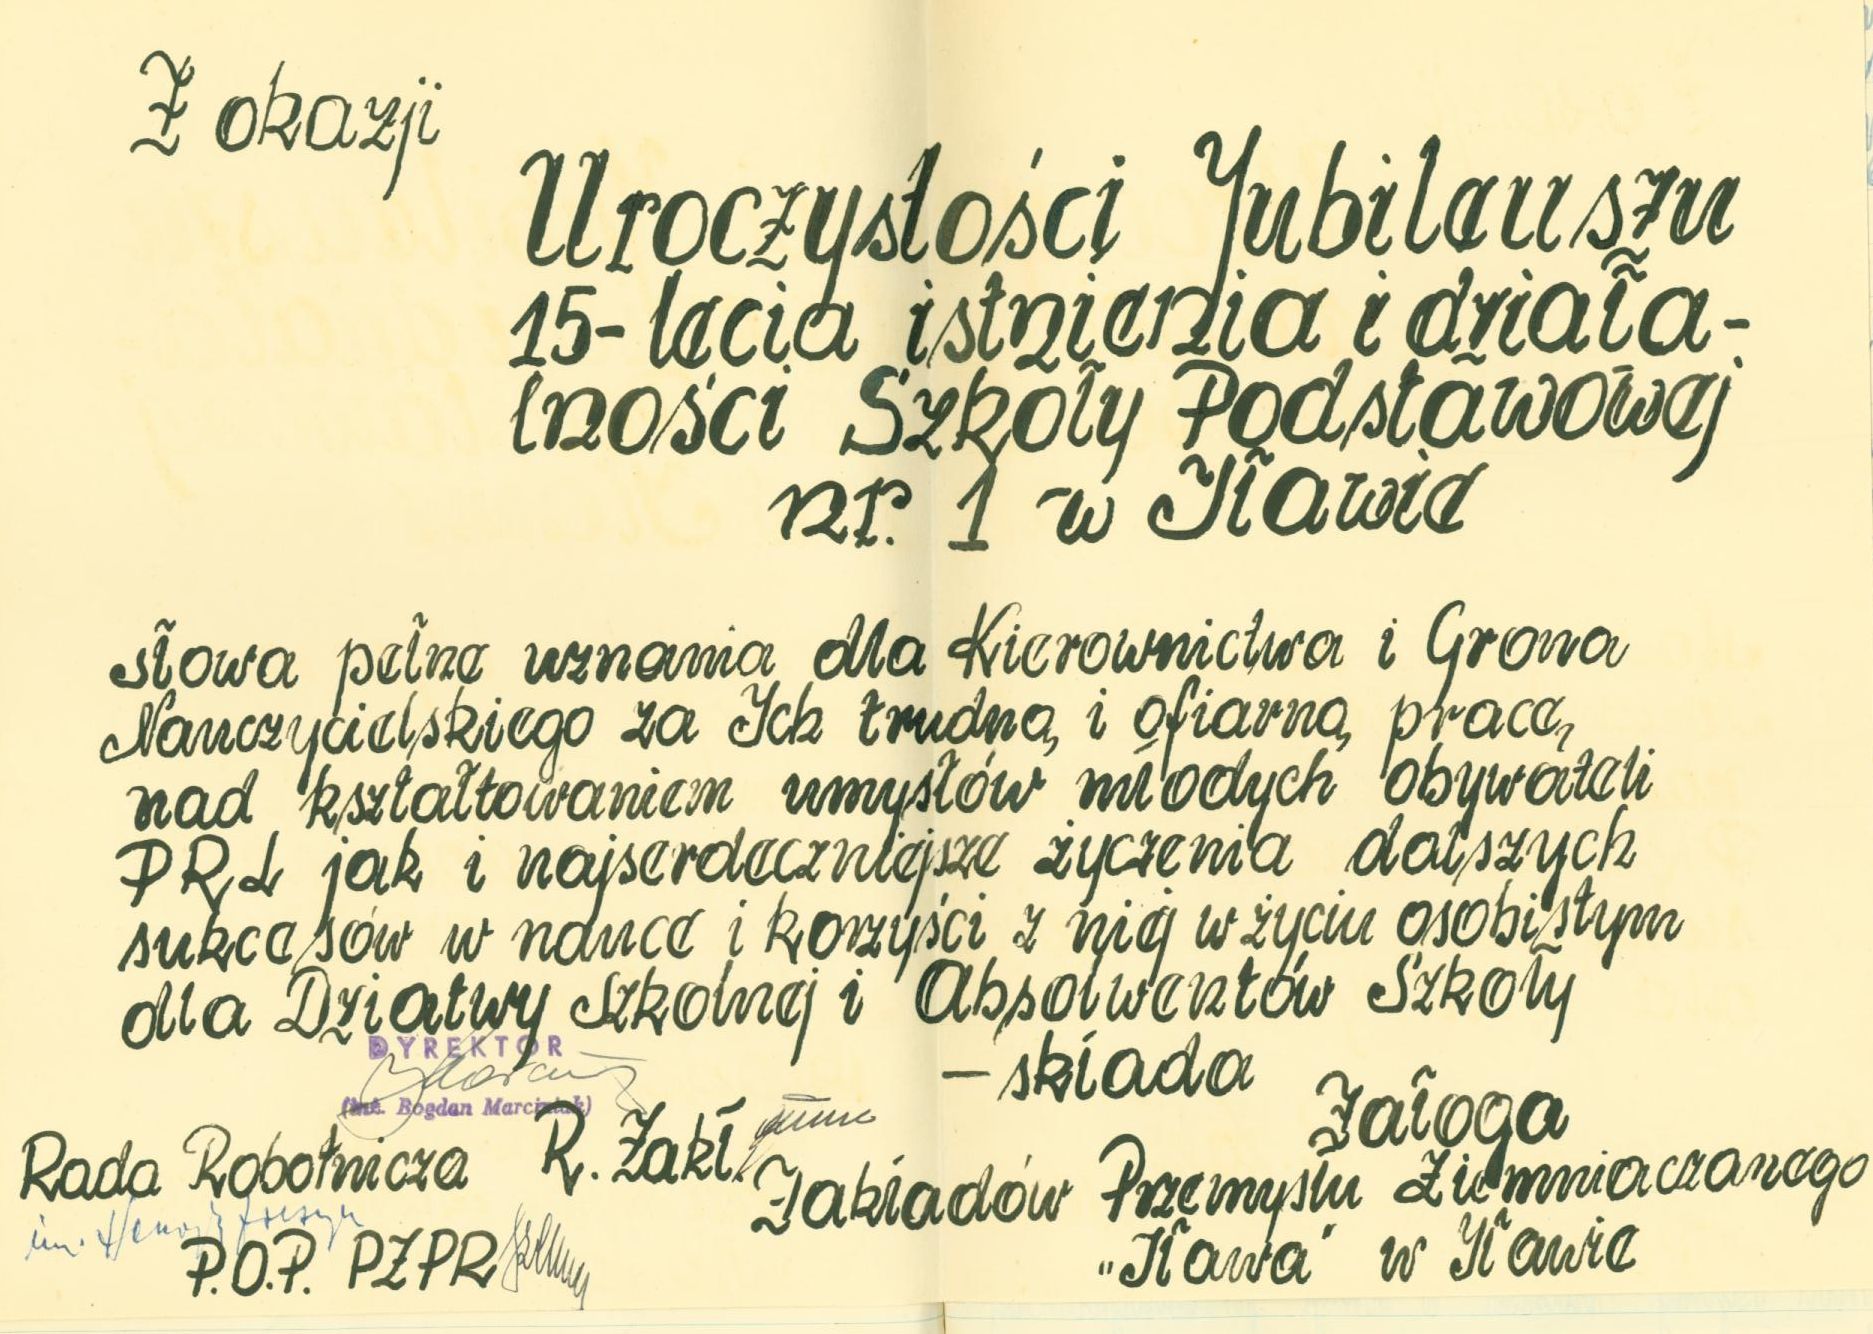 Z okazji
Uroczystości Jubileuszu
15-lecia istnienia i działa-
lności Szkoły Podstawowej
nr. 1 w Iławie
słowa pełne uznania dla Kierownictwa i Grona
Nauczycielskiego za Ich trudną i ofiarną pracę,
nad kształtowaniem umysłów młodych obywateli
PRL jak i najserdeczniejsze życzenia dalszych
sukcesów w nauce i korzyści z niej w życiu osobistym
dla Dziatwy Szkolnej i Absolwentów Szkoły
– składa
DYREKTOR
(inż. Bogdan Marciniak)
Załoga
Rada Robotnicza R. Zakł.
Zakładów Przemysłu Ziemniaczanego
P.O.P. PZPR
"Iława" w Iławie